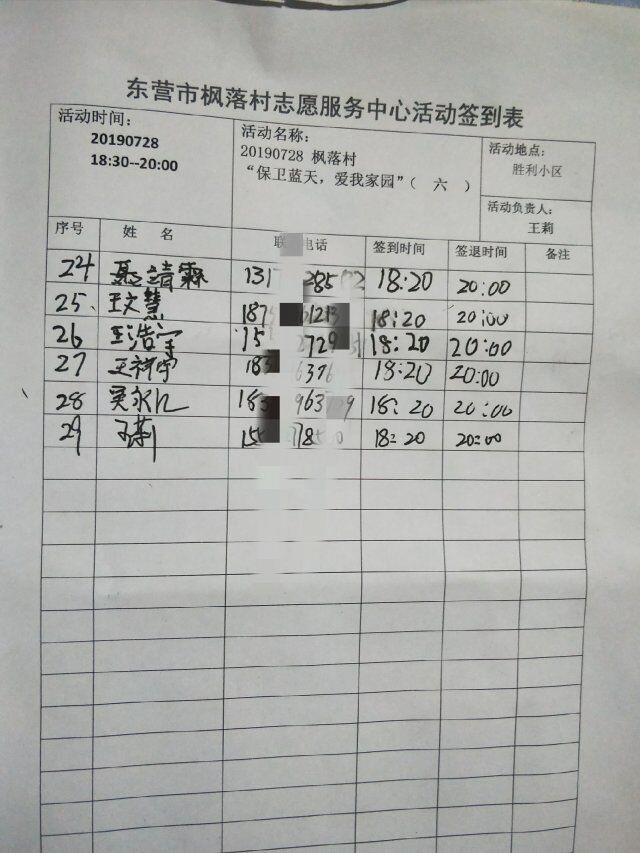 东营市枫落村志愿服务中心活动签到表
活动时间:
20190728
18:30--20:00
活动名称:
20190728 枫落村
“保卫蓝天，爱我家园”( 六 )
活动地点:
胜利小区
活动负责人:
王莉
序号 姓 名 联 电话 签到时间 签退时间 备注
24 聂靖霖 131 285 2 18:20 20:00
25 王文慧 187 1213 18:20 20:00
26 王浩宇 15 2729 18:20 20:00
27 王梓宇 183 6376 18:20 20:00
28 吴永 183 963 9 18:20 20:00
29 王莉 155 785 0 18:20 20:00